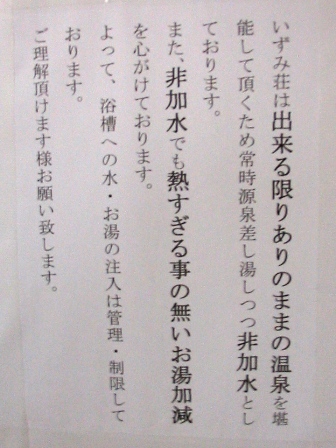 いずみ荘は出来る限りありのままの温泉を堪
能して頂くため常時源泉差し湯しつつ非加水とし
ております。
また、非加水でも熱すぎる事の無いお湯加減
を心がけております。
よって、浴槽への水・お湯の注入は管理・制限して
おります。
ご理解頂けます様お願い致します。